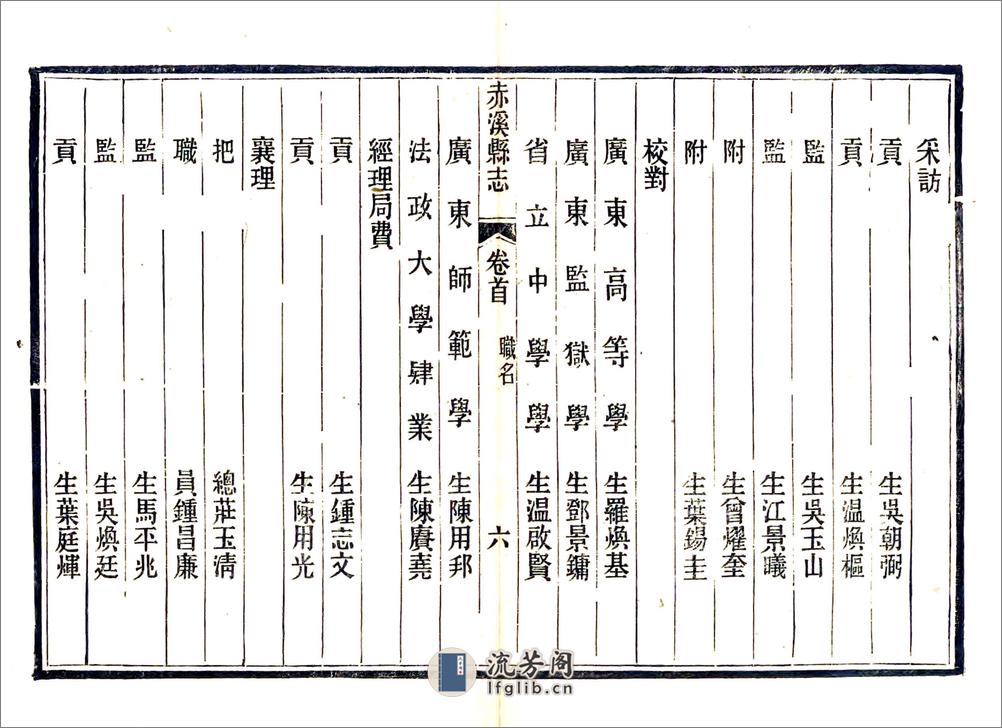 采訪
貢生吳朝弼
貢生温煥樞
監生吳玉山
監生江景曦
附生曾耀奎
附生葉錫圭
校對
廣東高等學生羅煥基
廣東監獄學生鄧景鏞
省立中學學生温啟賢
赤溪縣志 卷首 職名 六
廣東師範學生陳用邦
法政大學肄業生陳賡堯
經理局費
貢生鍾志文
貢生陳用光
襄理
把總莊玉清
職員鍾昌廉
監生馬平兆
監生吳煥廷
貢生葉庭輝
流芳阁
lfglib.cn